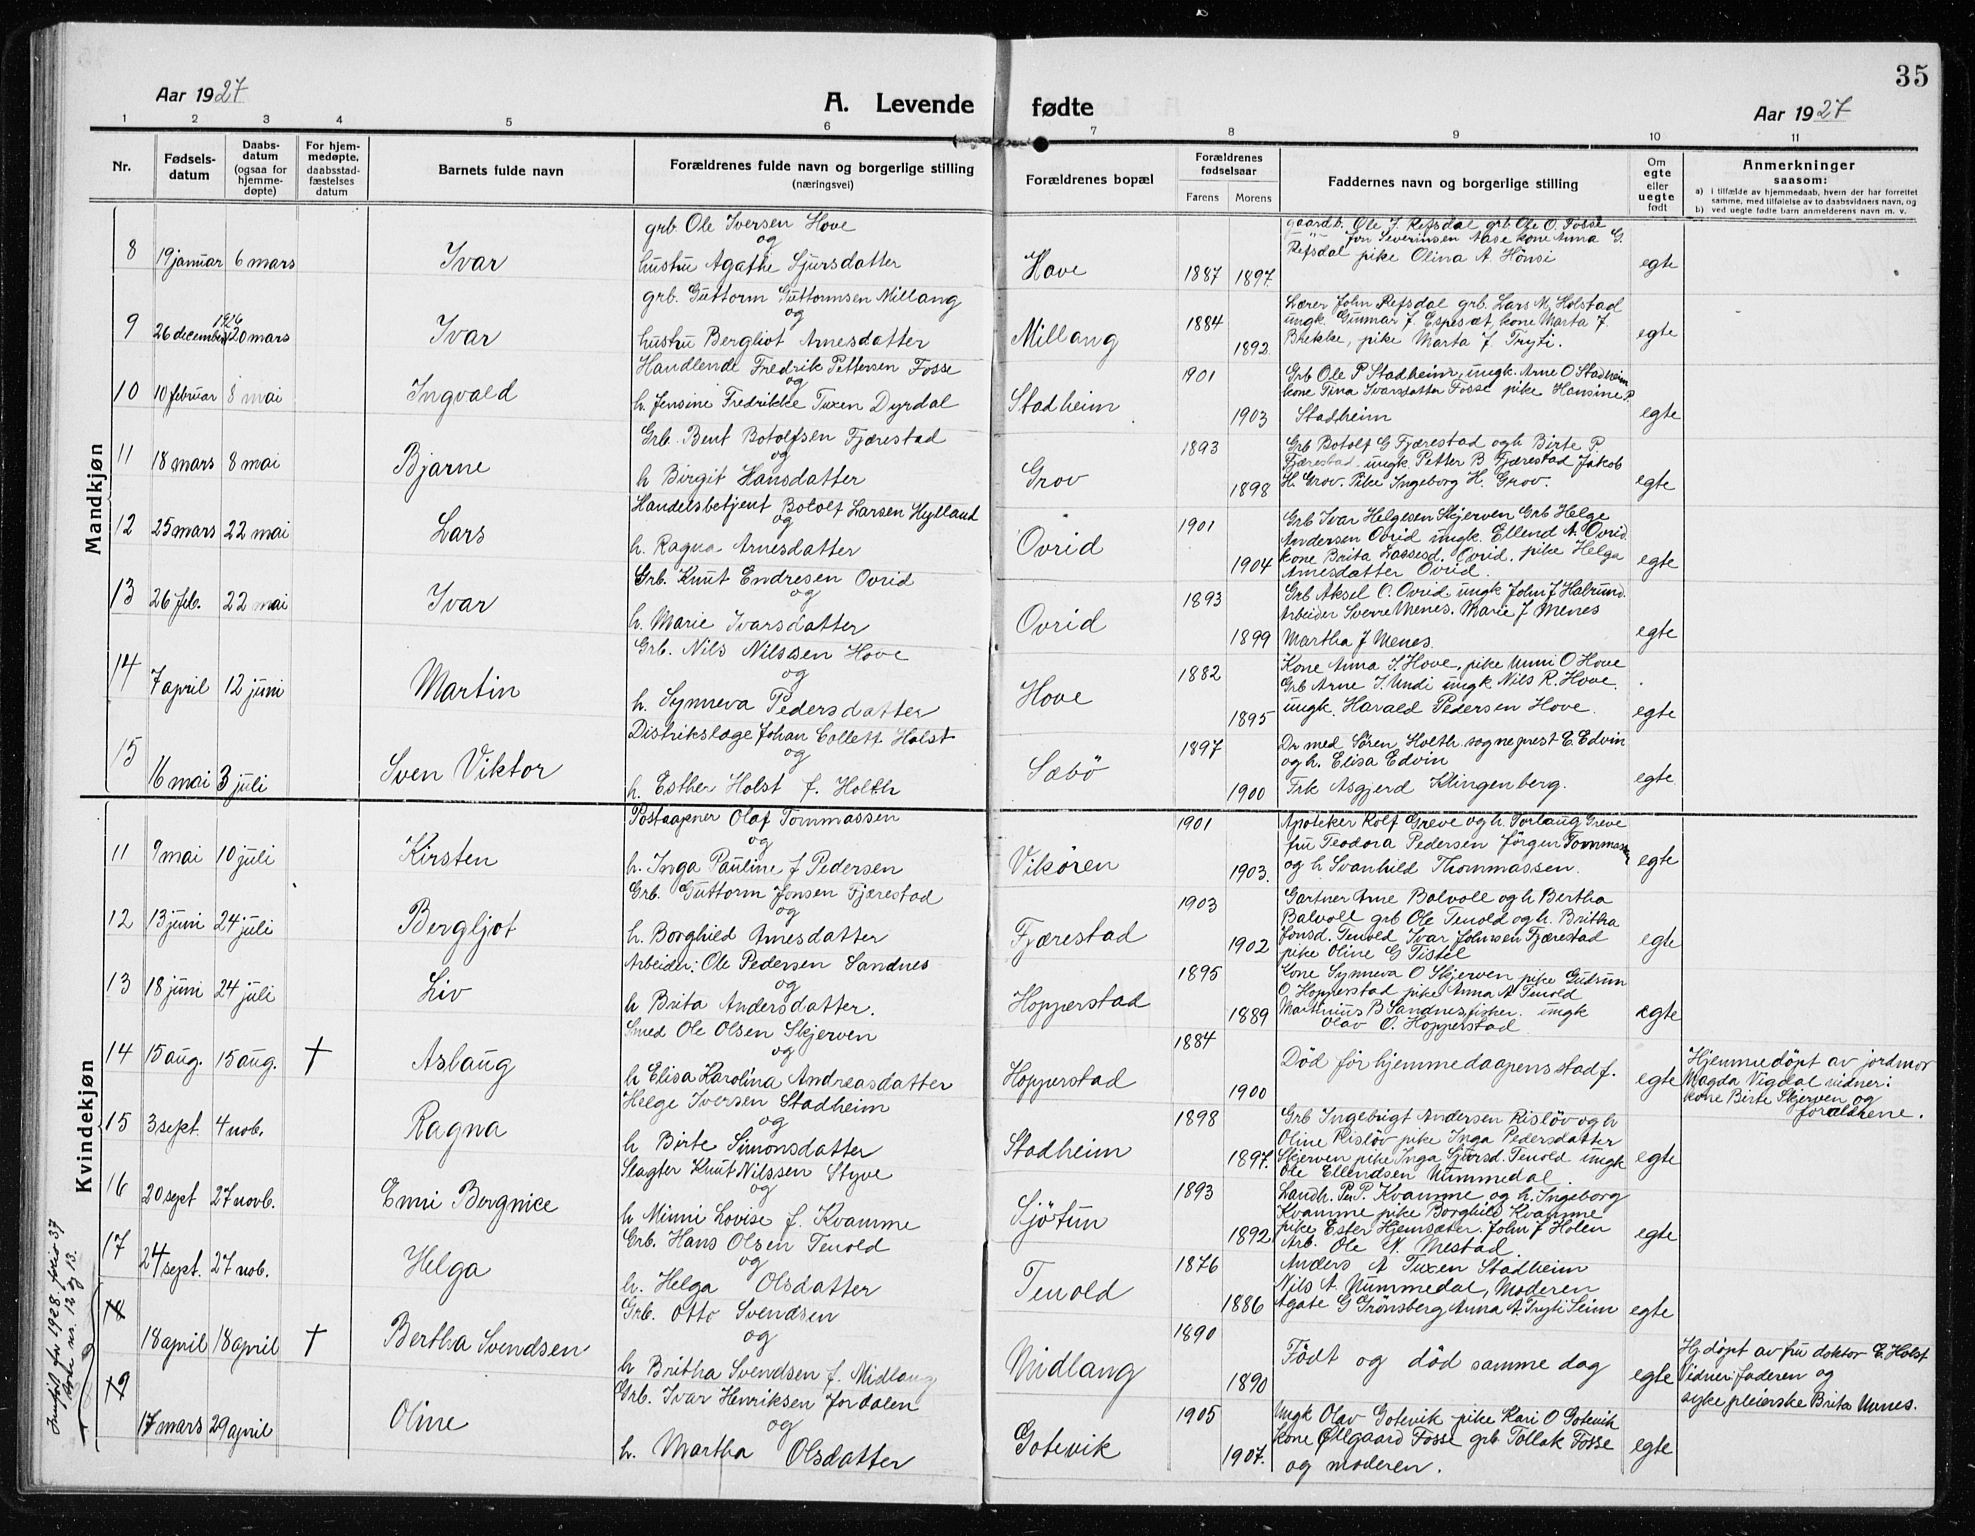 35
Aar 1927
A. Levende fødte
Aar 1927
1 2 3 4 5 6 7 8 9 10 11
Nr.
Fødsels-
datum
Daabs-
datum
(ogsaa for
hjemme-
døpte)
For hjem-
medøpte,
daabsstad-
fæstelses
datum
Barnets fulde navn
Forældrenes fulde navn og borgerlige stilling
(næringsvei)
Forældrenes bopæl
Forældrenes
fødselsaar
Farens Morens
Faddernes navn og borgerlige stilling
Om
egte
eller
uegte
født
Anmerkninger
saasom:
a) i tilfælde av hjemmedaab, hvem der har forrettet
samme, med tilføielse av to daabsvidners navn, og
b) ved uegte fødte barn anmelderens navn m. v.
Mandkjøn
8 19 januar 6 mars Ivar
grb Ole Iversen Hove
og
hustru Agathe Sjursdatter
Hove 1887 1897
gaardb. Ole J. Refsdal grb Ole O. Fosse
Severinsen Aase kone Anna G.
Refsdal pike Olina A Hönsi
egte
9 26 december 1926 20 mars Ivar
grb. Guttorm Guttormsen Millang
og
hustru Bergliot Arnesdatter
Millang 1884 1892
Lærer John Refsdal grb. Lars M. Holstad
ungk. Gunnar J. Espesæt, kone Marta J
Brekke, pike Marta J Tryti.
egte
10 10 februar 8 mai Ingvald
Handlende Fredrik Pettersen Fosse
og
h. Jensine Fredrikke Tuxen Dyrdal
Stadheim 1901 1903
Grb Ole P Stadheim, ungk. Arne O Stadheim
kone Tina Ivarsdatter Fosse pike Hansine P.
Stadheim
egte
11 18 mars 8 mai Bjarne
Grb. Bent Botolfsen Fjærestad
og
h Birgit Hansdatter
Grov 1893 1898
Grb Botolf G Fjærestad og h Birte P.
Fjærestad ungk. Petter B Fjærestad Jakob
H. Grov. Pike Ingeborg H. Grov.
egte
12 25 mars 22 mai Lars
Handelsbetjent Botolf Larsen Hylland
og
h. Ragna Arnesdatter
Ovrid 1901 1904
Grb Ivar Helgesen Skjerven Grb Helge
Andersen Ovrid ungk. Ellend A. Ovrid
kone Brita Lassesd. Ovrid, pike Helga
Arnesdatter Ovrid.
egte
13 26 feb. 22 mai Ivar
Grb. Knut Endresen Ovrid
og
h. Marie Ivarsdatter
Ovrid 1893 1899
Grb Aksel O. Ovrid ungk John J Halrund.
Arbeider Sverre Menes. Marie J Menes
Martha J Menes.
egte
14 7 april 12 juni Martin
Grb. Nils Nilssen Hove
og
h. Synneva Pedersdatter
Hove 1882 1895
Kone Anna I. Hove, pike Unni O Hove
Grb Arne I. Undi ungk Nils R. Hove.
ungk. Harald Pedersen Hove.
egte
15 16 mai 3 juli Sven Viktor
Distrikslæge Johan Collett Holst
og
h. Esther Holst f. Holth
Sæbö 1897 1900
Dr med Sören Holth sogneprest E. Edvin
og h. Elisa Edvin
Frk Asgjerd Klingenberg.
egte
Kvindekjøn
11 9 mai 10 juli Kirsten
Postaapner Olaf Tommassen
og
h. Inga Pauline f Pedersen
Vikören 1901 1903.
Apoteker Rolf Greve og h. Torlaug Greve
fru Teodora Pedersen Jörgen Tommassen
og h Svanhild Thommassen.
egte
12 13 juni 24 juli Bergljot
Grb. Guttorm Jonsen Fjærestad
og
h. Borghild Arnesdatter
Fjærestad 1903 1902
Gartner Arne Balvoll og h Bertha
Balvoll grb Ole Tenold og h. Britha
Jonsd. Tenold Ivar Johnsen Fjærestad
pike Oline G Tistel
egte
13 18 juni 24 juli Liv
Arbeider: Ole Pedersen Sandnes
og
h Brita Andersdatter.
Hopperstad 1895 1889
Kone Synneva O Skjerven pike Gudrun
O. Hopperstad pike Anna A Tenold
Martinus B Sandnes fisker. ungk
Olav O. Hopperstad
egte
14 15 aug. 15 aug. † Aslaug
Smed Ole Olsen Skjerven
og
h Elisa Karolina Andreasdatter
Hopperstad 1884 1900
Död för hjemmedaapens stadf.
egte
Hjemmedöpt av jordmor
Magda Vigdal vidner:
kone Birte Skjerven og
forældrene.
15 3 sept. 4 nob. Ragna
Helge Iversen Stadheim
og
h Birte Simonsdatter
Stadheim 1898 1897.
Grb Ingebrigt Andersen Rislöv og h
Oline Rislöv pike Inga Pedersdatter
Skjerven pike Inga Sjursd. Tenold ungk
Ole Ellendsen Nummedal.
egte
16 20 sept 27 novb. Emri Borgnice
Slagter Knut Nilssen Styve
og
h Minni Lovise f. Kvamme
Sjötun 1893 1892
Landh. Per P. Kvamme og h. Ingeborg
Kvamme pike Borghild Kvamme
pike Ester Hjemsæter. John J Holen
Arb. Ole N. Mestad.
egte
17 24 sept. 27 nob. Helga
Grb. Hans Olsen Tenold
og
h. Helga Olsdatter
Tenold 1876 1886
Anders A Tuxen Stadheim
Nils A. Nummedal, Moderen
Agate G Grönsberg Anna A. Tryti Seim
egte
18 april 18 april † Bertha Svendsen
Grb. Otto Svendsen
og
h Britha Svendsen f. Midlang
Midlang 1890 1890
Födt og död samme dag
egte
Hj.döpt av fru doktor E. Holst
Vidner: faderen og
sykepleierske Brita Unnes.
17 mars 29 april Oline
Grb. Ivar Henriksen Jordalen
og
h. Martha Olsdatter
Gotevik 1905 1907.
Ungk Olav Gotevik pike Kari O Gotevik
kone Ölgaard Fosse grb. Tollak Fosse
og moderen.
egte
Innført for 1928 folio 37
nr. 12 og 13.